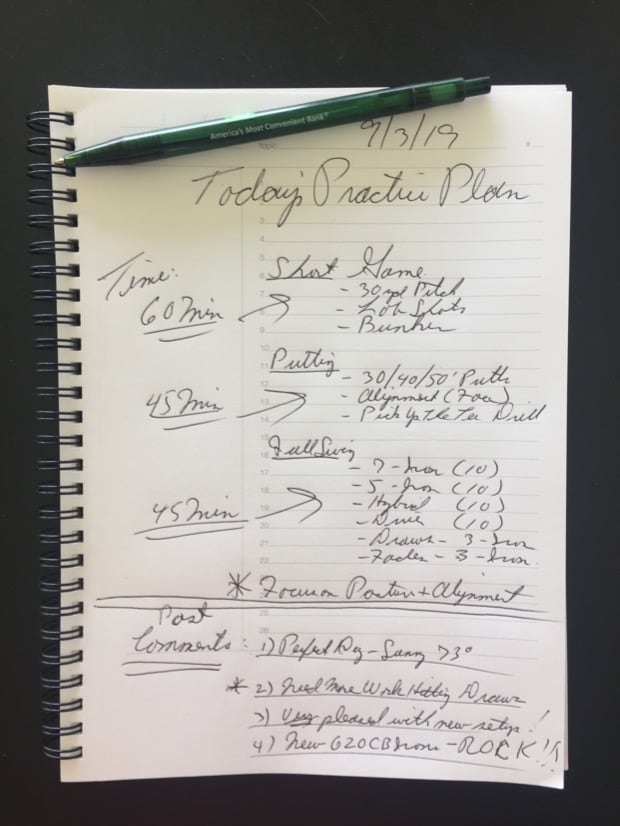 America's Most Convenient Bank®
9/3/19
topic
Today's Practice Plan
Time:
Short Game
60 Min
- 30 yd Pitch
- Lob Shots
- Bunker
Putting
45 Min
- 30/40/50' Putts
- Alignment
- Pick Up the Tee Drill
Full Swing
45 Min
- 7-Iron (10)
- 5-Iron (10)
- Hybrid (10)
- Driver (10)
- Draws - 3-Iron
- Fades - 3-Iron
* Focus on Posture + Alignment
Post
Comments:
1) Perfect Day - Sunny 73°
* 2) Need More Work Hitting Draws
3) Very pleased with new setup!
4) New G20CB Irons - ROCK!!